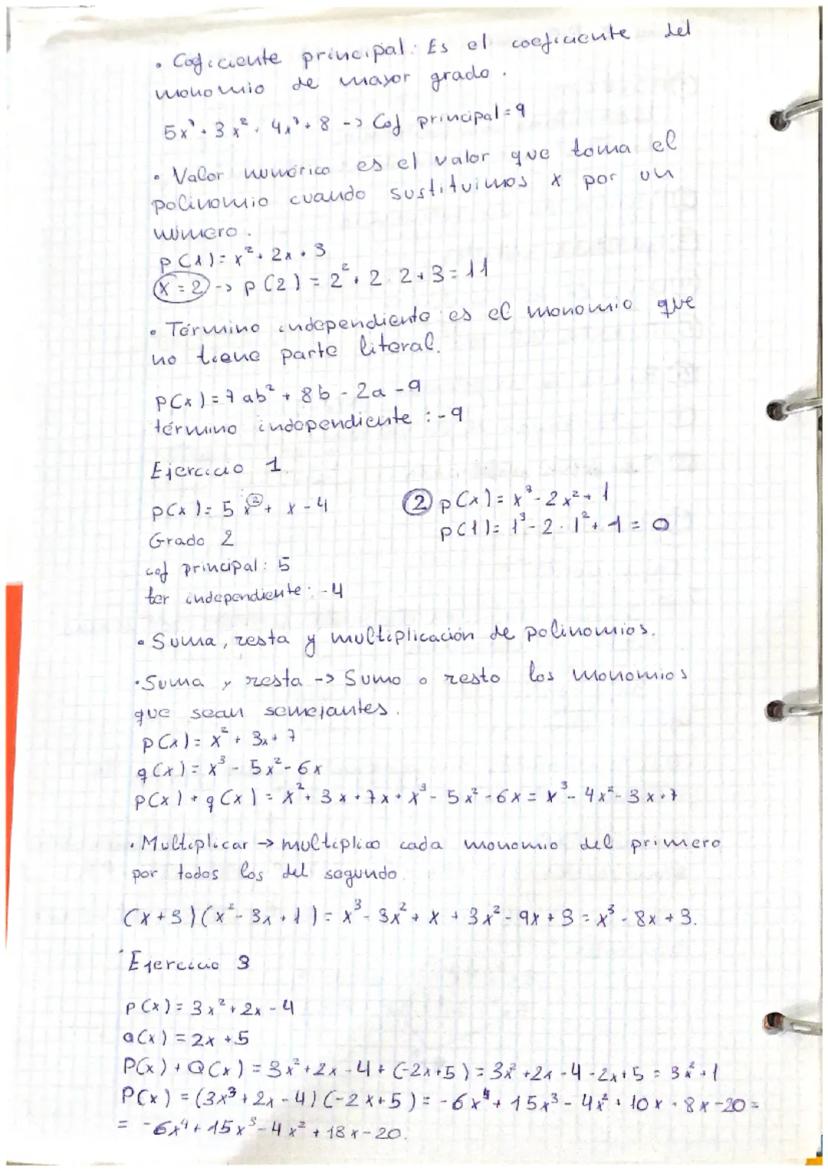 • Coficiente principal: Es el coeficiente del
monomio de mayor grado.
5x³ + 3x² + 4x³ + 8 -> Cof principal = 9
• Valor numérico es el valor que toma el
polinomio cuando sustituimos x por un
número.
p(x) = x² + 2x + 3
x = 2 -> p(2) = 2² + 2 · 2 + 3 = 11
• Término independiente es el monomio que
no tiene parte literal.
p(x) = 7ab² + 8b - 2a - 9
término independiente : -9
Ejercicio 1
p(x) = 5x² + x - 4
Grado 2
cof principal: 5
ter independiente: -4
② p(x) = x³ - 2x² + 1
p(1) = 1³ - 2 · 1² + 1 = 0
• Suma, resta y multiplicación de polinomios.
• Suma y resta -> Sumo o resto los monomios
que sean semejantes.
p(x) = x² + 3x + 7
q(x) = x³ - 5x² - 6x
p(x) + q(x) = x² + 3x + 7x + x³ - 5x² - 6x = x³ - 4x² - 3x + 7
• Multiplicar → multiplico cada monomio del primero
por todos los del segundo.
(x + 3)(x² - 3x + 1) = x³ - 3x² + x + 3x² - 9x + 3 = x³ - 8x + 3.
• Ejercicio 3
p(x) = 3x² + 2x - 4
Q(x) = 2x + 5
P(x) + Q(x) = 3x² + 2x - 4 + (-2x + 5) = 3x² + 2x - 4 - 2x + 5 = 3x² + 1
P(x) = (3x³ + 2x - 4)(-2x + 5) = -6x⁴ + 15x³ - 4x² + 10x + 8x - 20 =
= -6x⁴ + 15x³ - 4x² + 18x - 20.